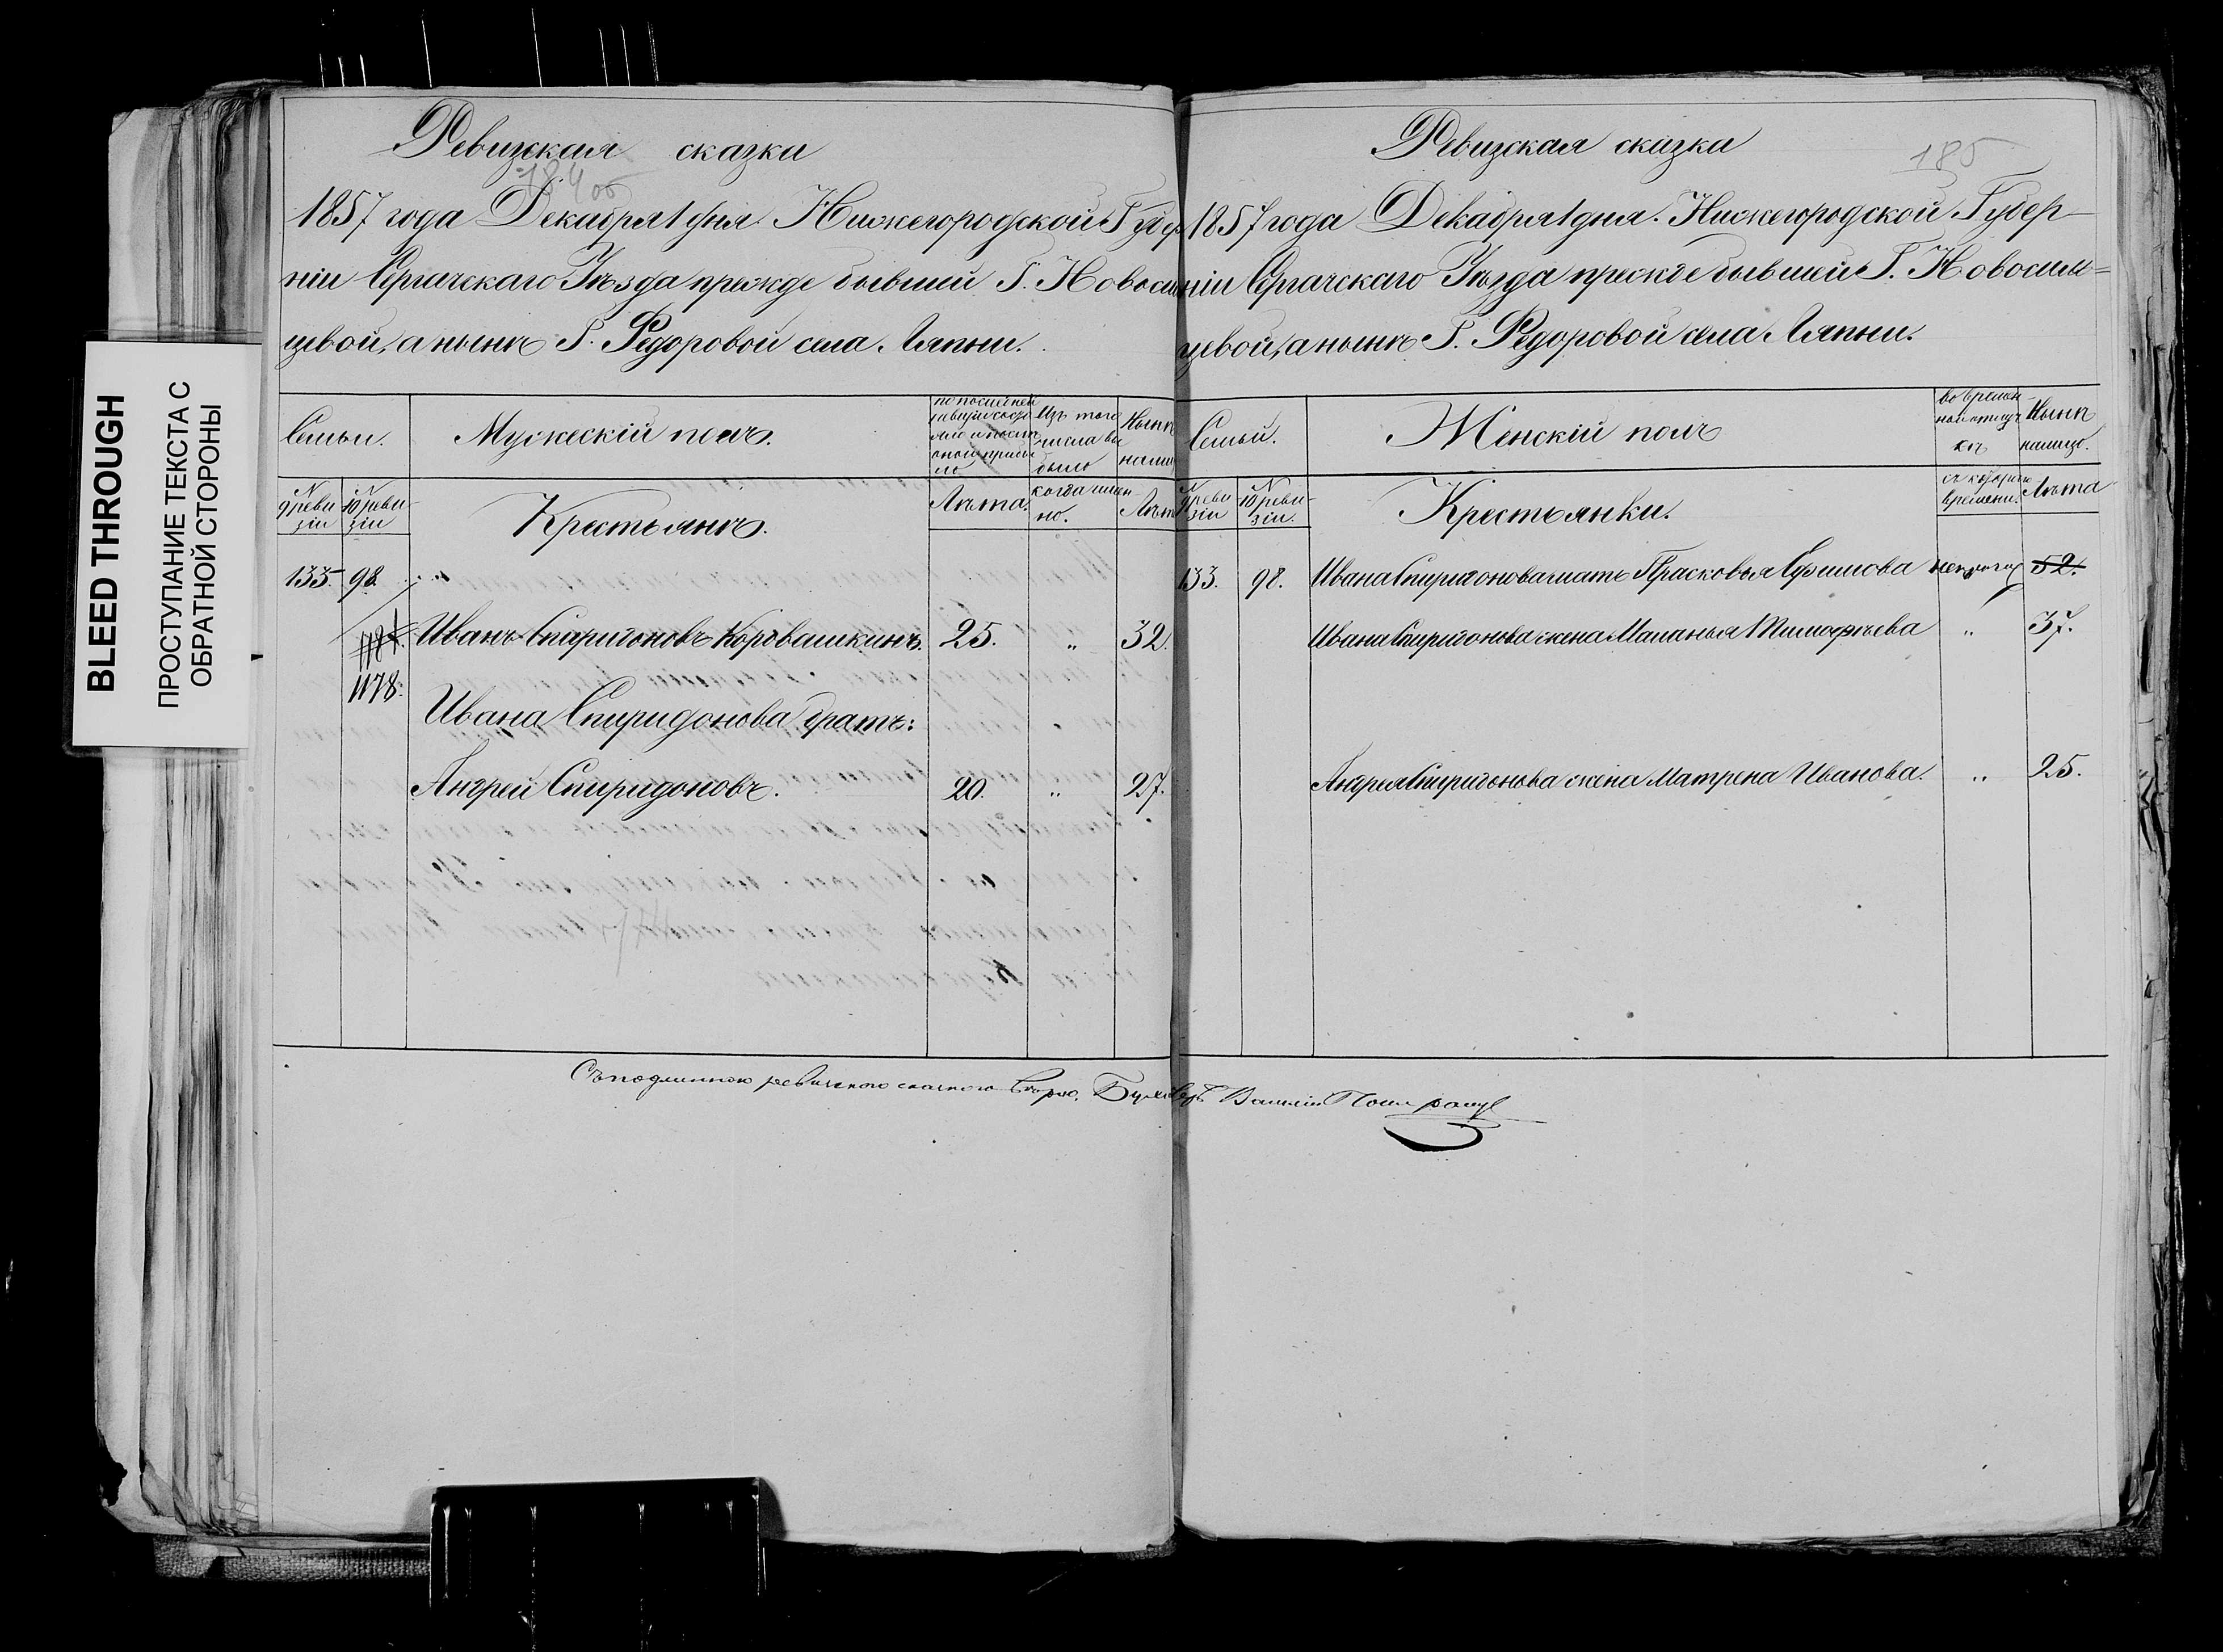 BLEED THROUGH
ПРОСТУПАНИЕ ТЕКСТА С
ОБРАТНОЙ СТОРОНЫ
Ревизская сказка
184 об
1857 года Декабря 1 дня Нижегородской Губер
ніи Сергачскаго Уѣзда прежде бывшей Г. Новосил
цевой, а нынѣ Г. Федоровой села Ляпни.
Семьи.
Мужескій полъ.
Изъ того
числа вы
было
Нынѣ
нали
N
9 реви
зіи
N
10 реви-
зіи
Крестьянъ.
Лѣта.
когда имен-
но.
Лѣт
133. 98.
1184. Иванъ Спиридоновъ Коровашкинъ. 25. " 32.
1178.
Ивана Спиридонова братъ:
Андрей Спиридоновъ. 20. " 27.
Ревизская сказка
185
1857 года Декабря 1 дня. Нижегородской Губер-
ніи Сергачскаго Уѣзда прежде бывшей Г. Новосиль=
цевой, а нынѣ Г. Федоровой села Ляпни.
Семьи.
Женскій полъ
во времен-
ной отлуч
кѣ
Нынѣ
налицо.
N
9 реви
зіи
N
10 реви-
зіи.
Крестьянки.
съ котораго
времени.
Лѣта
133. 98. Ивана Спиридонова мать Прасковья Ефимова 52.
Ивана Спиридонова жена Маланья Тимофѣева " 37.
Андрея Спиридонова жена Матрена Иванова. " 25.
Съ подлинною вѣрно.